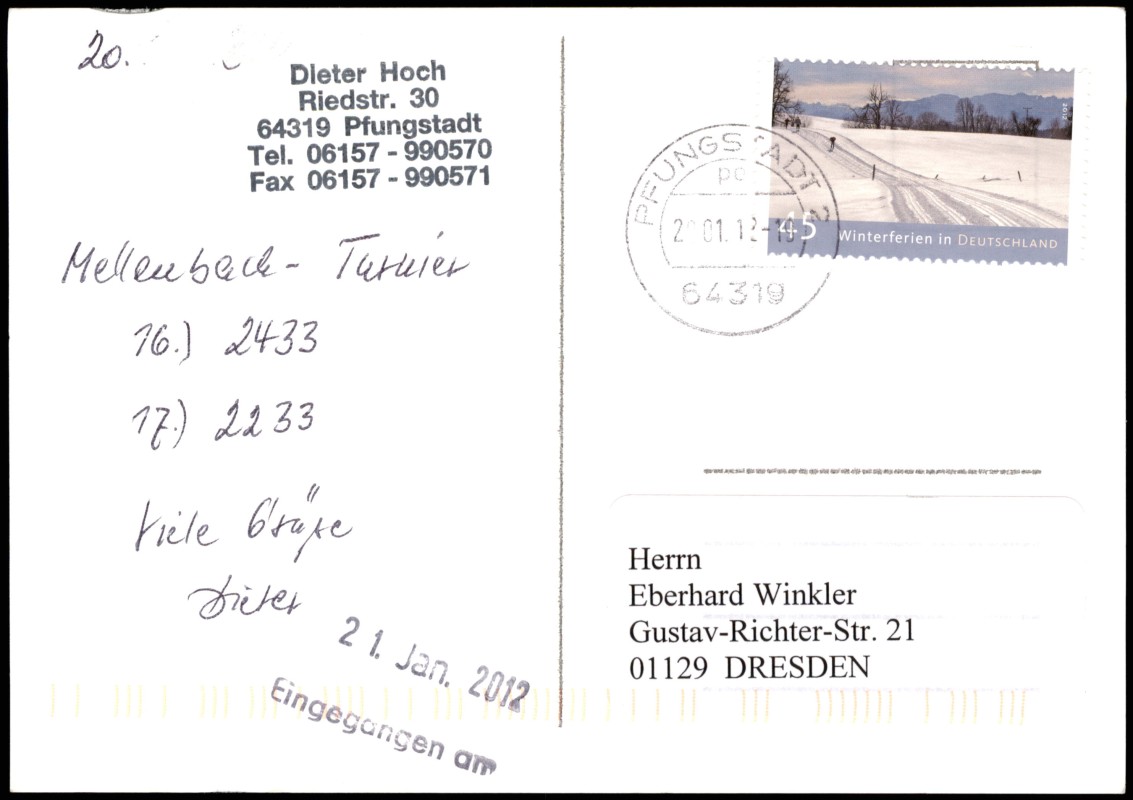 20.
Dieter Hoch
Riedstr. 30
64319 Pfungstadt
Tel. 06157 - 990570
Fax 06157 - 990571
Mellenbach - Turnier
16.) 2433
17.) 2233
Viele Grüße
Dieter
21. Jan. 2012
Eingegangen am
PFUNGSTADT 2
01.12-1
64319
45 Winterferien in DEUTSCHLAND
Herrn
Eberhard Winkler
Gustav-Richter-Str. 21
01129 DRESDEN